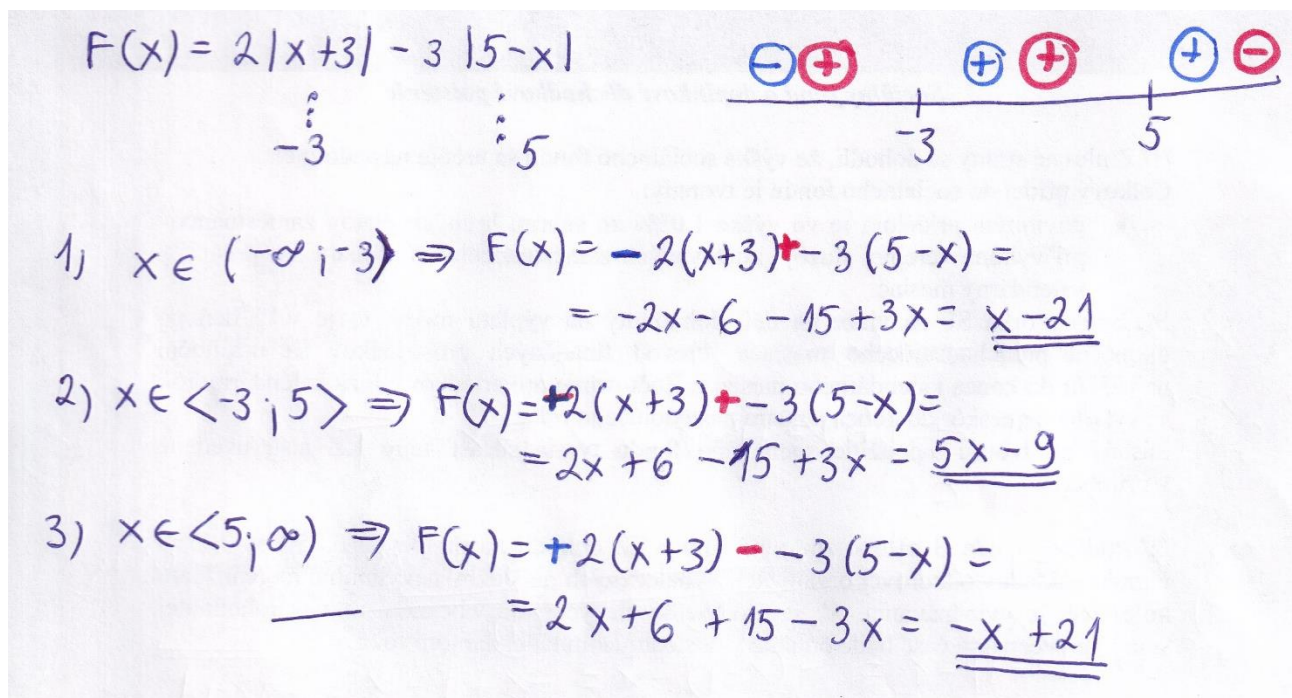 F(x) = 2|x+3| - 3|5-x|
-3 5
- + + + + -
-3 5
1, x ∈ (-∞ ; -3) ⇒ F(x) = - 2(x+3) + - 3(5-x) =
= -2x-6 -15+3x = x-21
2) x ∈ <-3 ; 5> ⇒ F(x) = +2(x+3) + - 3(5-x) =
= 2x+6 -15+3x = 5x-9
3) x ∈ <5; ∞) ⇒ F(x) = +2(x+3) - -3(5-x) =
= 2x+6 +15-3x = -x +21